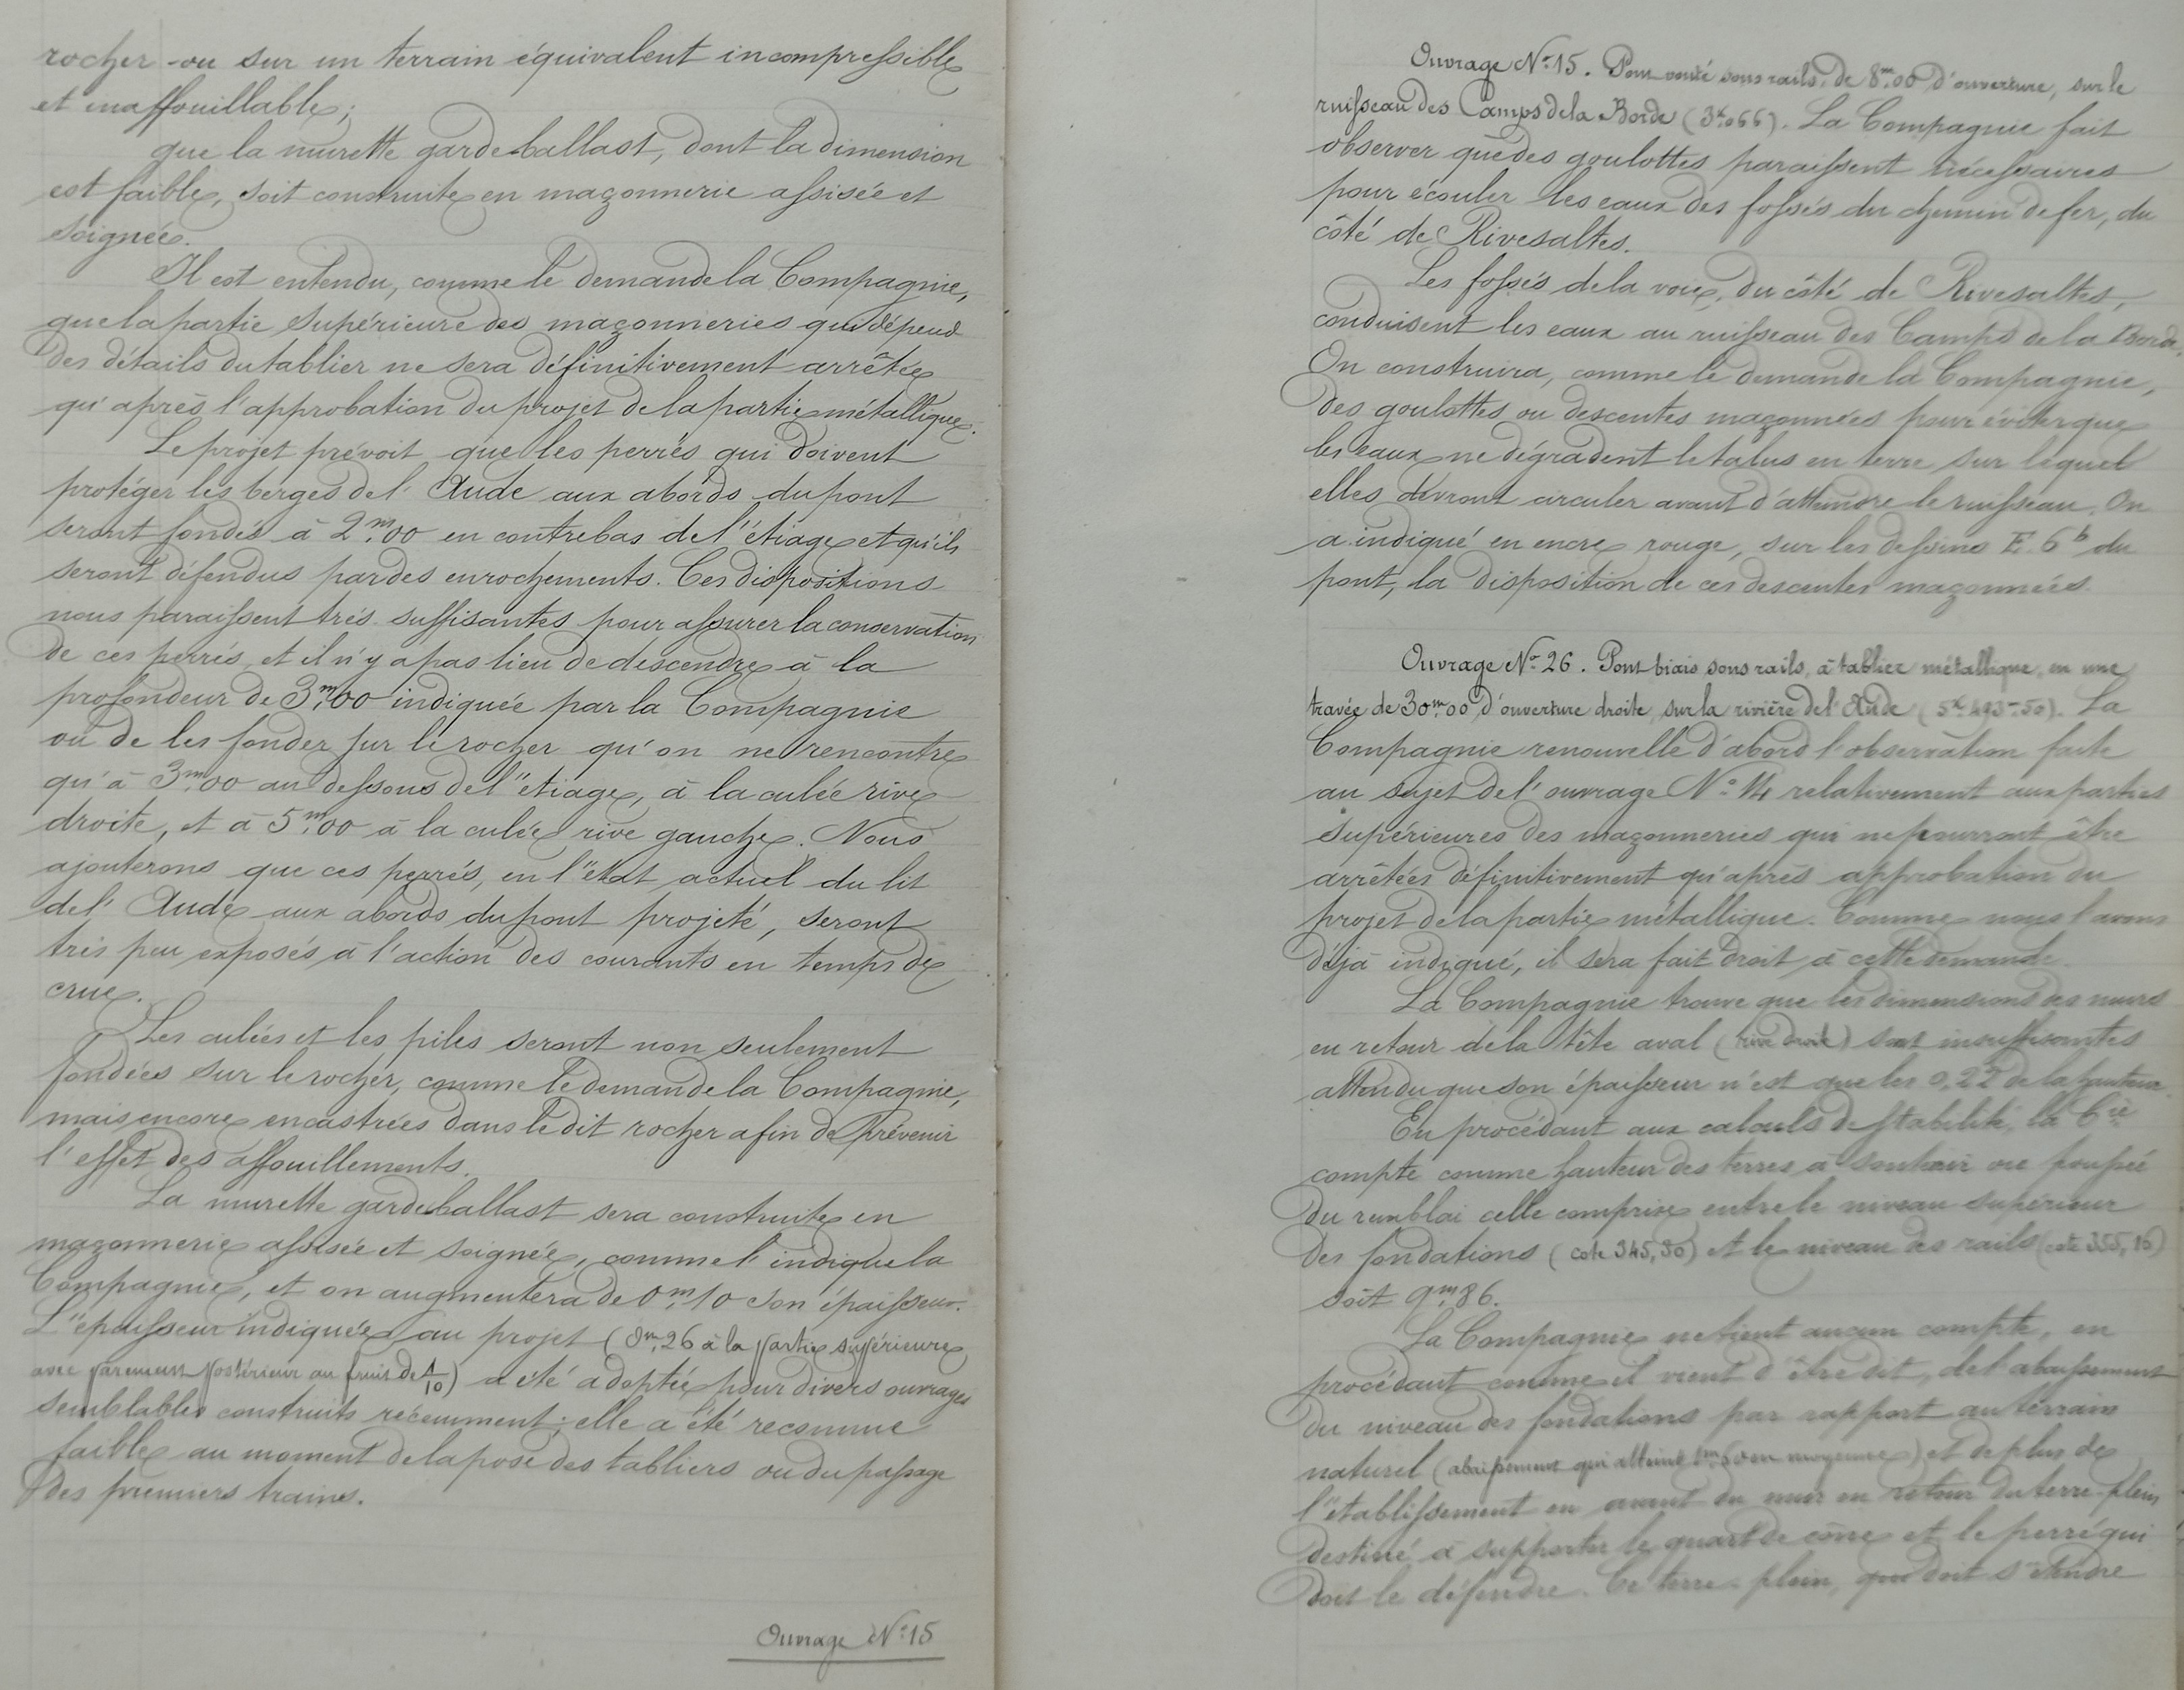 rocher ou sur un terrain équivalent incompressible
et inaffouillable;
que la murette garde-ballast, dont la dimension
est faible, soit construite en maçonnerie assisée et
soignée.
Il est entendu, comme le demande la Compagnie,
que la partie supérieure des maçonneries qui dépend
des détails du tablier ne sera définitivement arrêtée
qu'après l'approbation du projet de la partie métallique.
Le projet prévoit que les perrés qui doivent
protéger les berges de l'Aude aux abords du pont
seront fondés à 2m,00 en contrebas de l'étiage et qu'ils
seront défendus par des enrochements. Ces dispositions
nous paraissent très suffisantes pour assurer la conservation
de ces perrés, et il n'y a pas lieu de descendre à la
profondeur de 3m,00 indiquée par la Compagnie
ou de les fonder sur le rocher qu'on ne rencontre
qu'à 3m,00 au dessous de l'étiage, à la culée rive
droite, et à 5m,00 à la culée rive gauche. Nous
ajouterons que ces perrés, en l'état actuel du lit
de l'Aude aux abords du pont projeté, seront
très peu exposés à l'action des courants en temps de
crue.
Les culées et les piles seront non seulement
fondées sur le rocher, comme le demande la Compagnie,
mais encore encastrées dans le dit rocher afin de prévenir
l'effet des affouillements.
La murette garde ballast sera construite en
maçonnerie assisée et soignée, comme l'indique la
Compagnie, et on augmentera de 0m,10 son épaisseur.
L'épaisseur indiquée au projet (0m,26 à la partie supérieure
avec parement postérieur au fruit de 1/10) a été adoptée pour divers ouvrages
semblables construits récemment; elle a été reconnue
faible au moment de la pose des tabliers ou du passage
des premiers trains.
Ouvrage N° 15
Ouvrage N° 15. Pont voûté sous rails, de 8m,00 d'ouverture, sur le
ruisseau des Camps de la Borde (3k,066). La Compagnie fait
observer que des goulottes paraissent nécessaires
pour écouler les eaux des fossés du chemin de fer, du
côté de Rivesaltes.
Les fossés de la voie, du côté de Rivesaltes,
conduisent les eaux au ruisseau des Camps de la Borde.
On construira, comme le demande la Compagnie,
des goulottes ou descentes maçonnées pour éviter que
les eaux ne dégradent le talus en terre sur lequel
elles devront circuler avant d'atteindre le ruisseau. On
a indiqué en encre rouge, sur les dessins E. 6b du
pont, la disposition de ces descentes maçonnées.
Ouvrage N° 26. Pont biais sous rails, à tablier métallique, en une
travée de 30m,00 d'ouverture droite, sur la rivière de l'Aude (5k,493m,50). La
Compagnie renouvelle d'abord l'observation faite
au sujet de l'ouvrage N° 14 relativement aux parties
supérieures des maçonneries qui ne pourront être
arrêtées définitivement qu'après approbation du
projet de la partie métallique. Comme nous l'avons
déjà indiqué, il sera fait droit à cette demande.
La Compagnie trouve que les dimensions des murs
en retour de la tête aval (rive droite) sont insuffisantes
attendu que son épaisseur n'est que les 0,22 de la hauteur.
En procédant aux calculs de stabilité, la Cie
compte comme hauteur des terres à soutenir ou poussée
du remblai celle comprise entre le niveau supérieur
des fondations (cote 345,30) et le niveau des rails (cote 355,16)
soit 9m,86.
La Compagnie ne tient aucun compte, en
procédant comme il vient d'être dit, de l'abaissement
du niveau des fondations par rapport au terrain
naturel (abaissement qui atteint en moyenne) et de plus de
l'établissement en avant du mur en retour du terre-plein
destiné à supporter le quart de cône et le perré qui
doit le défendre. Ce terre-plein, qui doit s'étendre